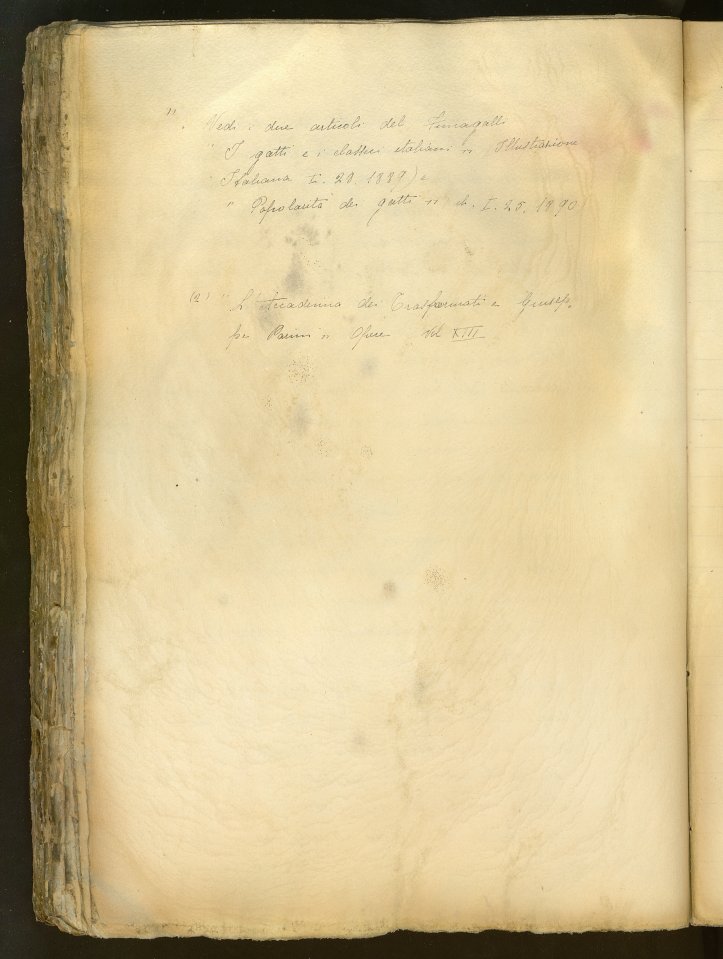 1)
Vedi i due articoli del Fumagalli
" I gatti e i classici italiani " Illustrazione
Italiana 29. 1889) e
" Popolarità dei gatti " I. 25. 1890
(2) " L'Accademia dei Trasformati e Giusep-
pe Parini " Opere Vol XIII